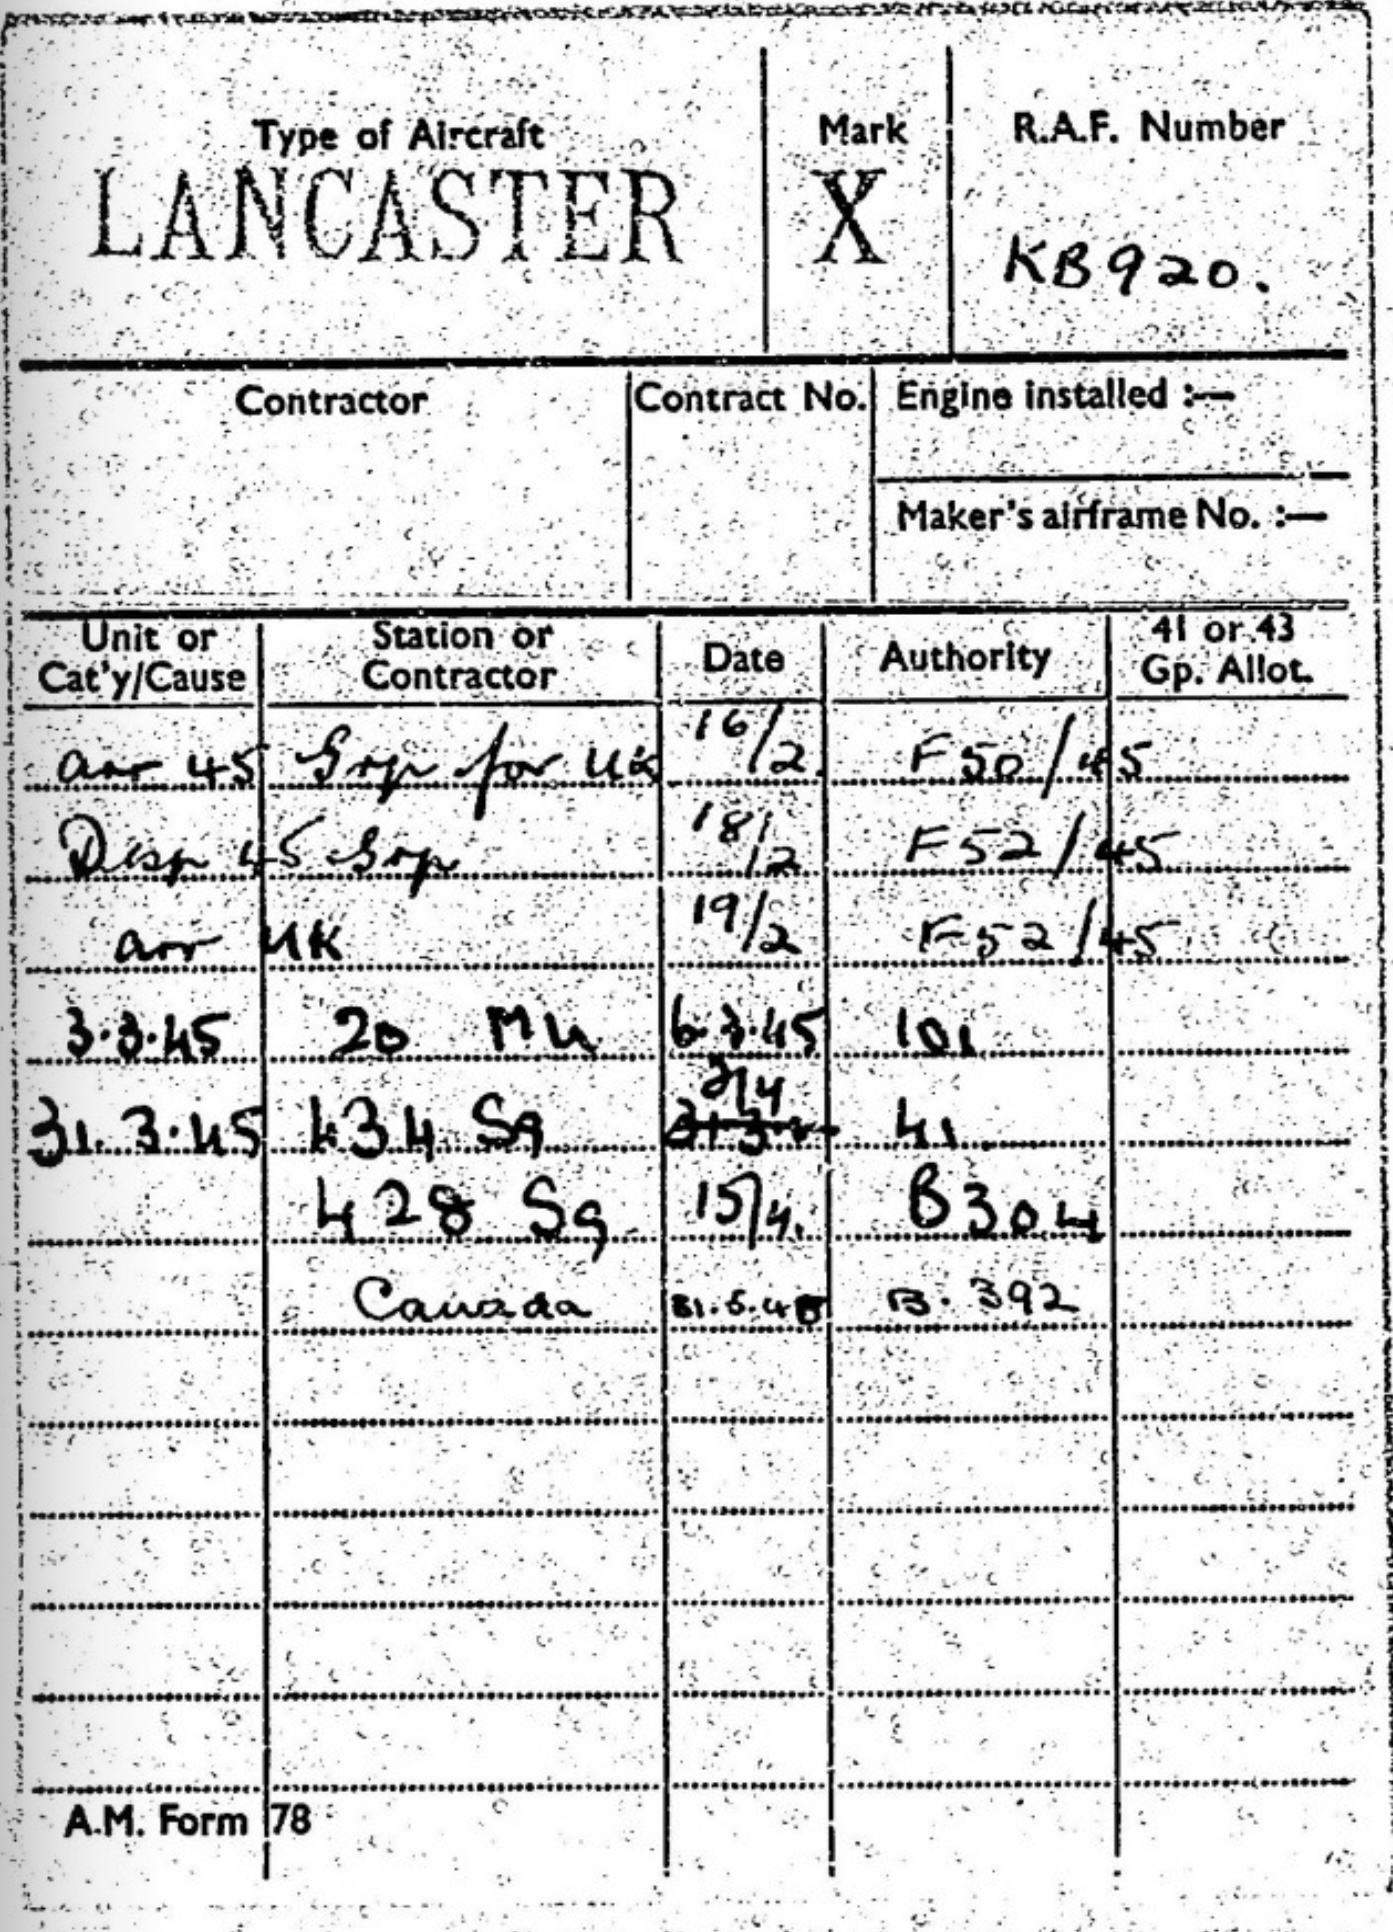 Type of Aircraft Mark R.A.F. Number
LANCASTER X KB920.
Contractor Contract No. Engine installed :—
Maker's airframe No. :—
Unit or Cat'y/Cause Station or Contractor Date Authority 41 or 43 Gp. Allot.
arr 45 Grp for UK 16/2. F50/45
Desp 45 Grp 18/2 F52/45
arr UK 19/2 F52/45
3.3.45 20 MU 6.3.45 101
31.3.45 434 Sq 2/4 41
428 Sq 15/4. B304
Canada 31.5.45 B.392
A.M. Form 78